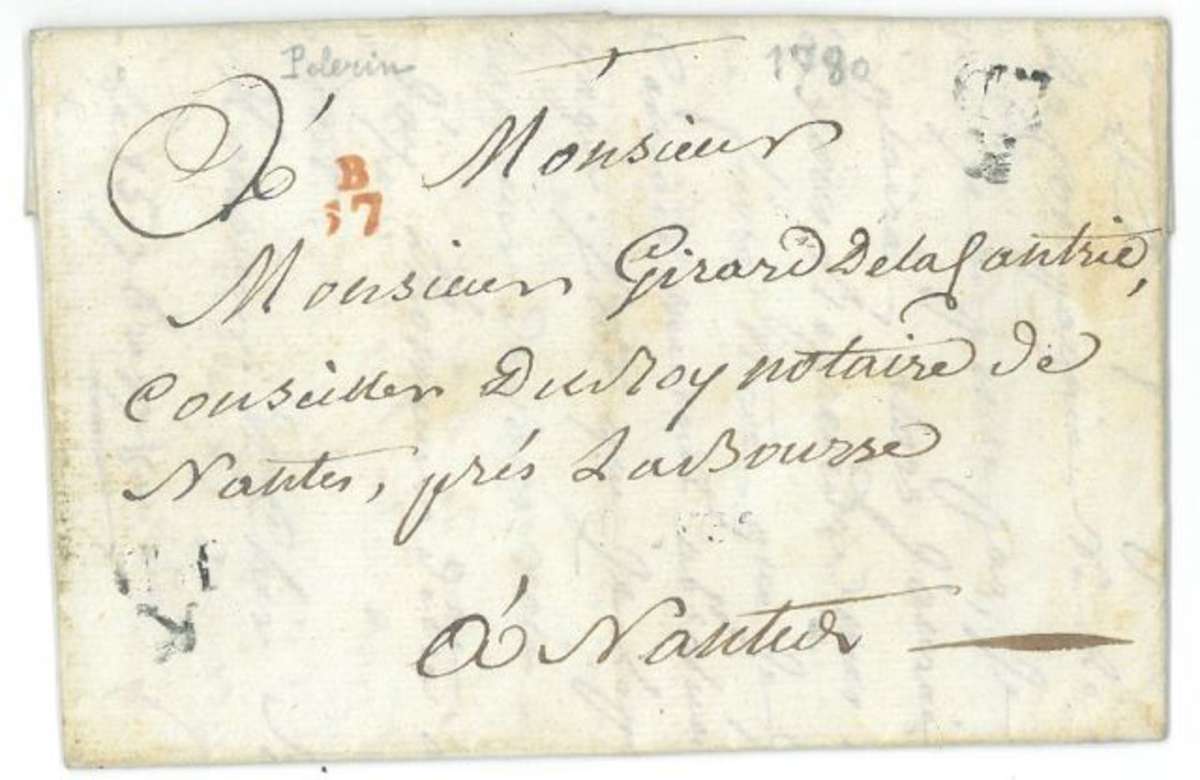 Pelerin
1780
À Monsieur
B
57
Monsieur Girard Delagantrie,
Conseiller Du Roy notaire de
Nantes, prés La Bourse
á Nantes